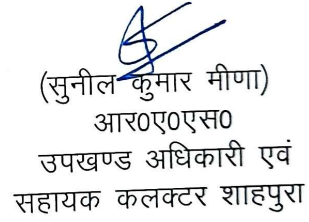 (सुनील कुमार मीणा)
आर0ए0एस0
उपखण्ड अधिकारी एवं
सहायक कलक्टर शाहपुरा